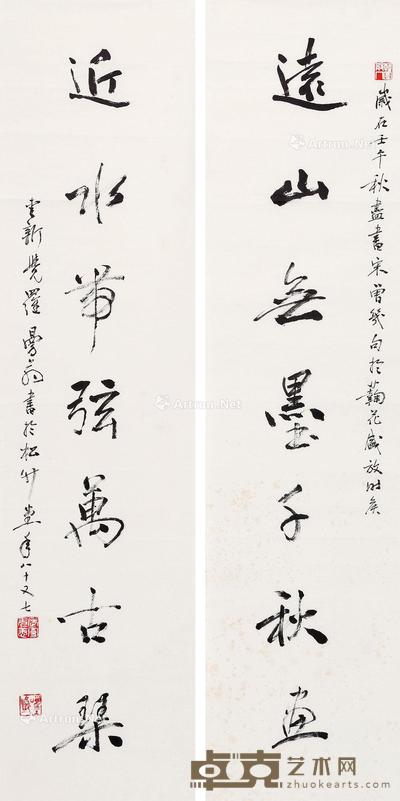 遠山無墨千秋畫
歲在壬午秋盡書宋曾幾句於蘜花盛放時矣
近水弦萬古琴
愛新覺羅曼翁書於松竹堂年八十又七
Artron.Net
卓克艺术网
zhuokearts.com